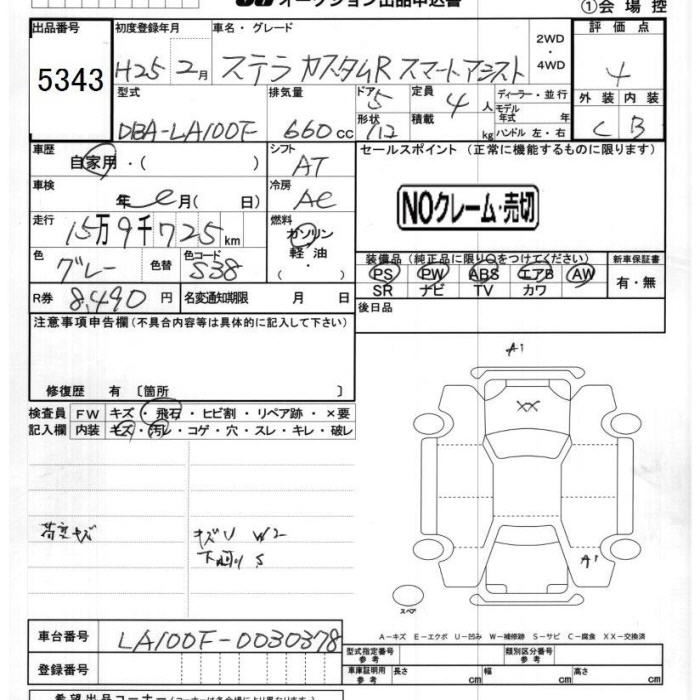 オークション出品申込書
①会場控
出品番号 初度登録年月 車名・グレード 2WD・4WD 評価点
5343 H25 2月 ステラ カスタムR スマートアシスト 4
型式 排気量 ドア 5 定員 4人 ディーラー・並行 外装 内装
モデル年式 年
DBA-LA100F 660cc 形状 積載 kg ハンドル 左・右 C B
車歴 自家用・( ) シフト AT セールスポイント (正常に機能するものに限ります)
車検 年 月( 日) 冷房 AC
NOクレーム・売切
走行 15万9千725km 燃料 ガソリン・軽油・
色 グレー 色替 色コード S38
装備品(純正品に限り○をつけてください) 新車保証書
PS PW ABS エアB AW 有・無
SR ナビ TV カワ
R券 8,490円 名変通知期限 月 日
後日品
注意事項申告欄(不具合内容等は具体的に記入して下さい)
修復歴 有〔箇所 〕
検査員 FW キズ・飛石・ヒビ割・リペア跡・×要
記入欄 内装 キズ・汚レ・コゲ・穴・スレ・キレ・破レ
A1
XX
キズU W2
下廻り S
A1
スペア
A－キズ E－エクボ U－凹み W－補修跡 S－サビ C－腐食 XX－交換済
車台番号 LA100F-0030378
型式指定番号 参考 類別区分番号 参考
登録番号 車庫証明用 参考 長さ cm 幅 cm 高さ cm
希望出品コーナー(コーナーは各会場により異なります)